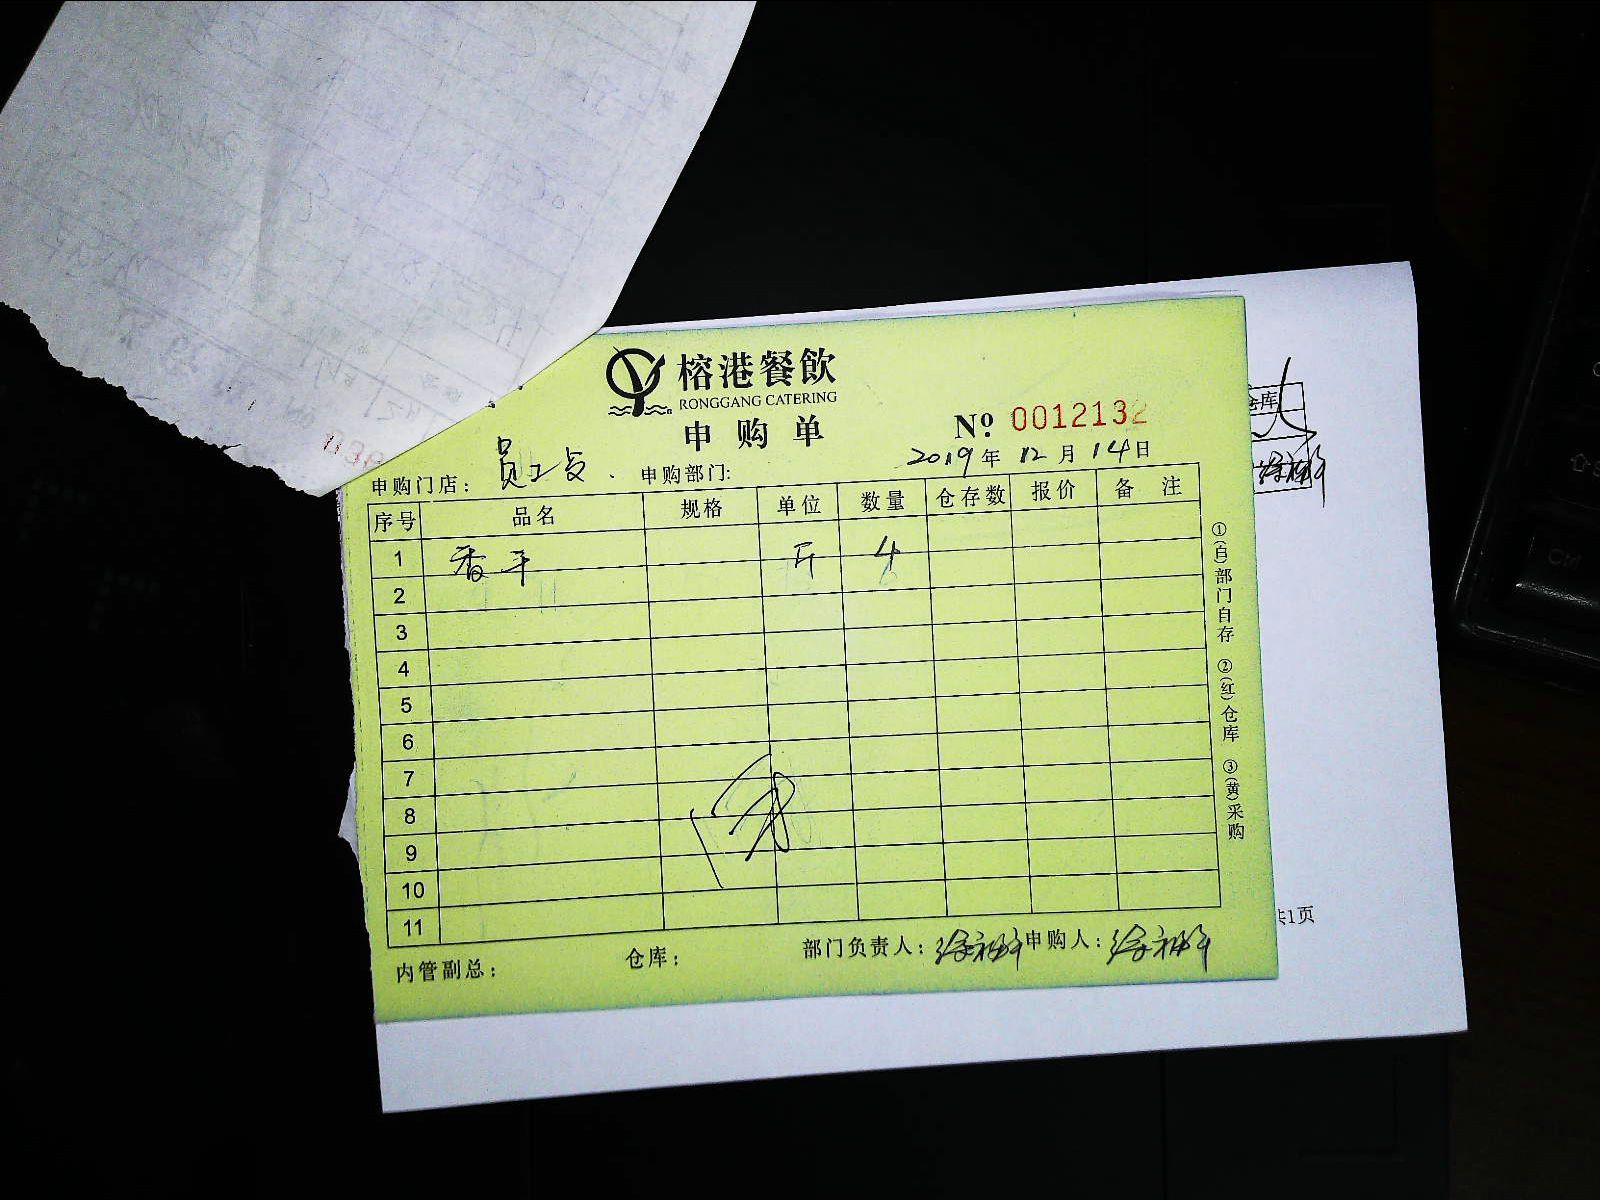 榕港餐飲
RONGGANG CATERING
申购单
Nº 0012132
申购门店: 员工 申购部门: 2019年12月14日
序号 品名 规格 单位 数量 仓存数 报价 备注
1 香干 斤 4
2
3
4
5
6
7
8
9
10
11
内管副总: 仓库: 部门负责人: 申购人:
①(白)部门自存 ②(红)仓库 ③(黄)采购
仓库
共1页